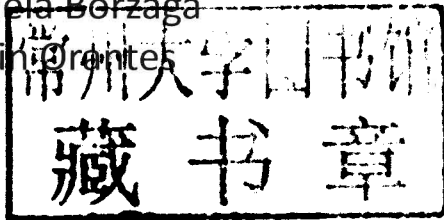 ela Borzaga
in Orentes
常州大学图书馆
藏书章